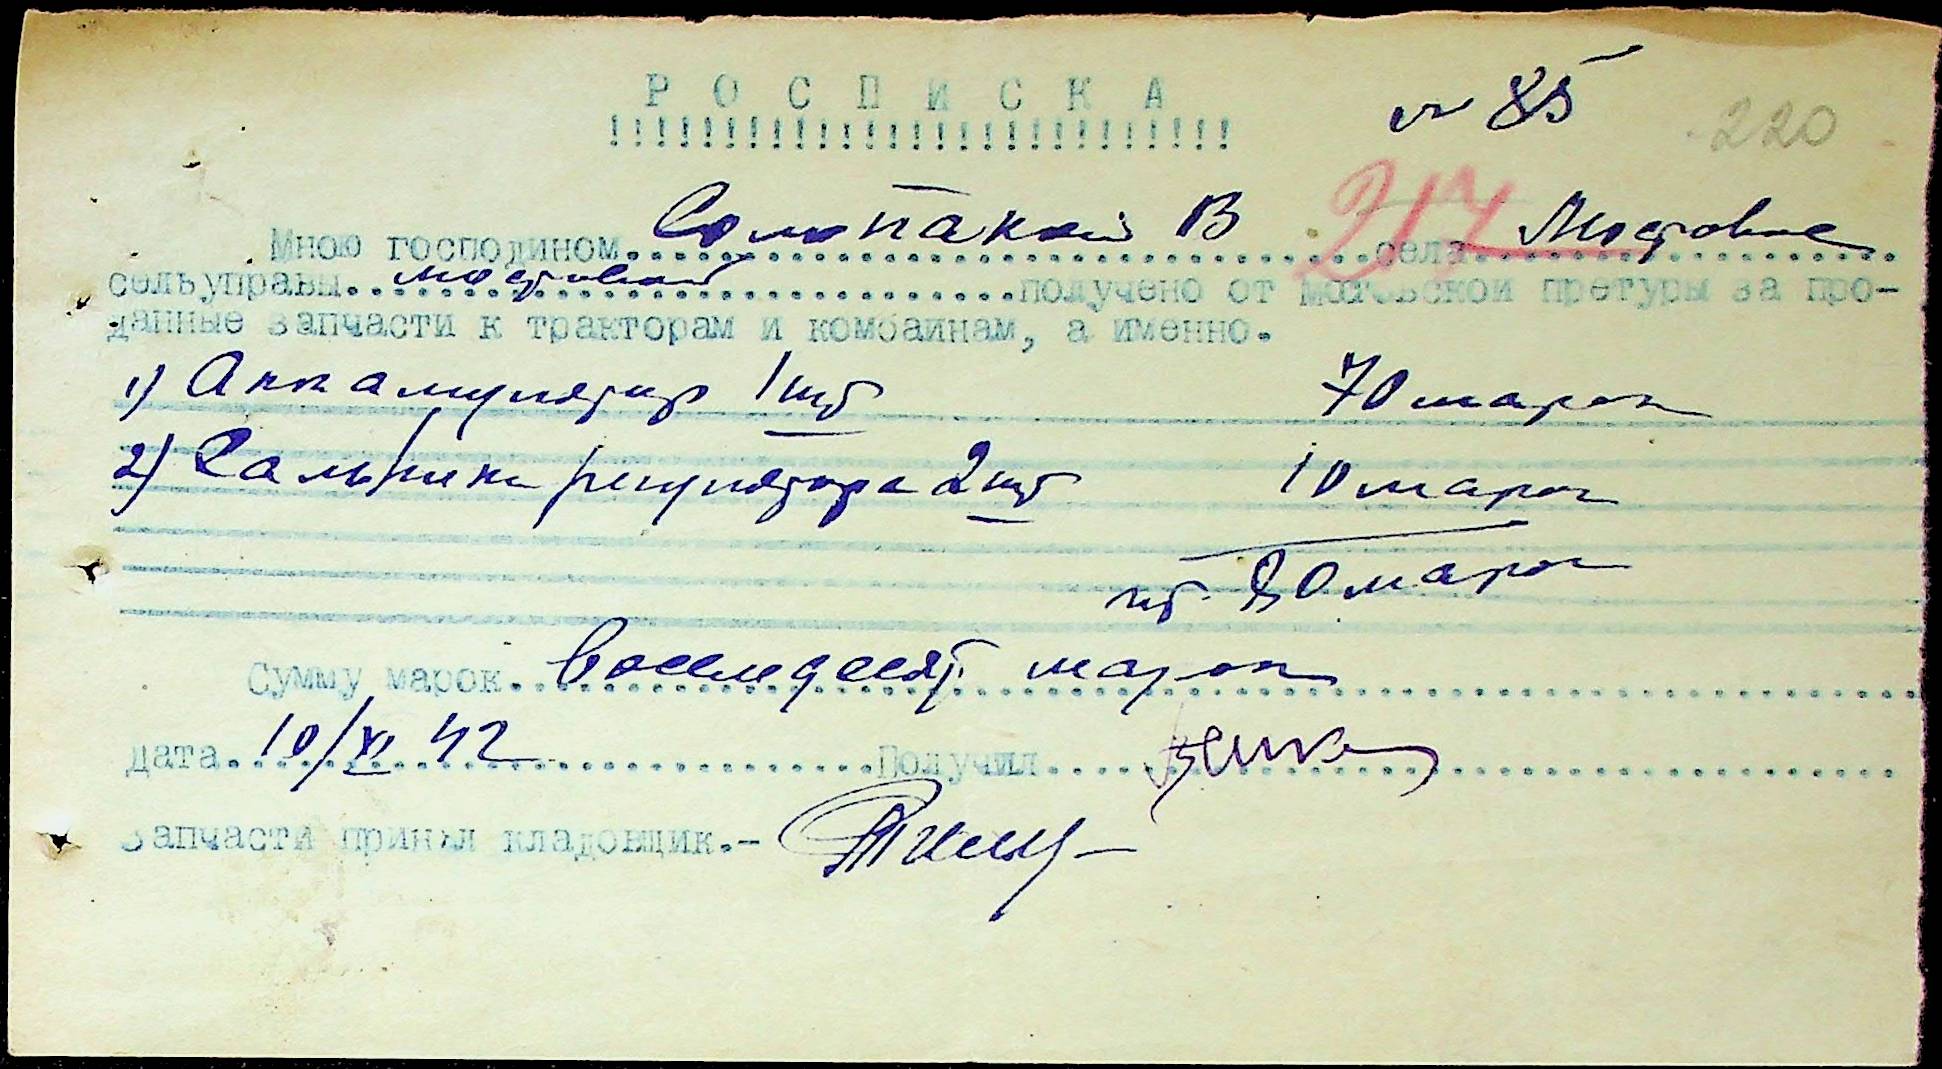 РОСПИСКА
!!!!!!!!!!!!!!!!!!!!!!!!!!!
№ 85
220
217
Мною господином.......В.......села Мостовое
сельуправы Мостовой.......получено от Мостовской претуры за про-
данные запчасти к тракторам и комбаинам, а именно.
1) Аккамулятор 1 шт 70 марок
2) Сальники регулятора 2 шт 10 марок
ит. 80 марок
Сумму марок. восемдесят марок
дата. 10/XI 42.......Получил.......
Запчасти принял кладовщик.-